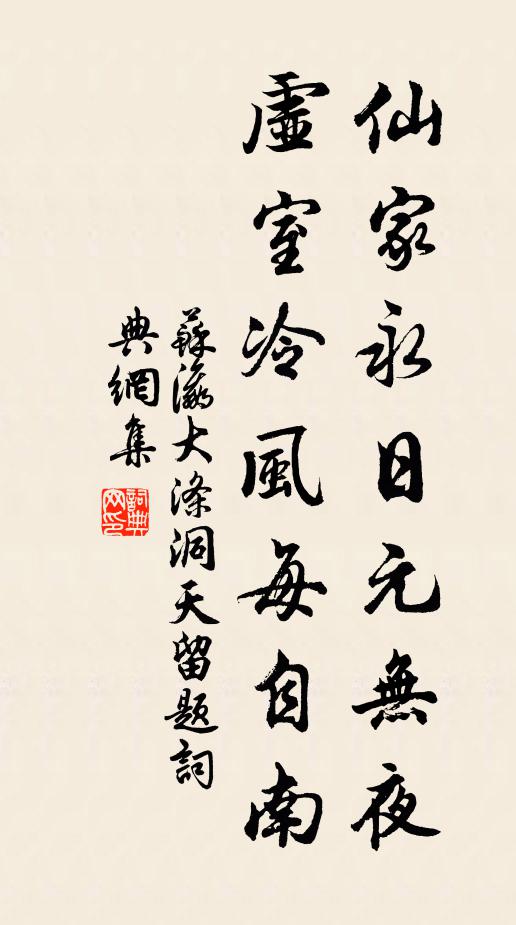 仙家永日元無夜
虛室冷風每自南
蘇瀛大滌洞天留題詞
典網集
詞典網印